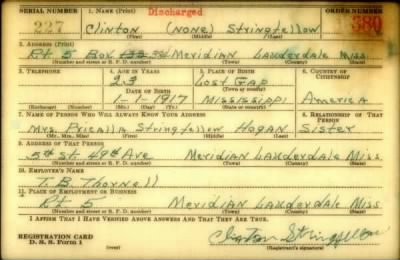 SERIAL NUMBER 1. NAME (Print) Discharged ORDER NUMBER
227 Clinton (NONE) Stringfellow 380
(First) (Middle) (Last)
2. ADDRESS (Print)
Rt 5 Box Meridian Lauderdale Miss.
(Number and street or R. F. D. number) (Town) (County) (State)
3. TELEPHONE 4. AGE IN YEARS 5. PLACE OF BIRTH 6. COUNTRY OF CITIZENSHIP
23 Lost Gap
(Town or county)
DATE OF BIRTH
1-1-1917 Mississippi America
(Exchange) (Number) (Mo.) (Day) (Yr.) (State or country)
7. NAME OF PERSON WHO WILL ALWAYS KNOW YOUR ADDRESS 8. RELATIONSHIP OF THAT PERSON
Mrs. Pricalla Stringfellow Hogan Sister
(Mr., Mrs., Miss) (First) (Middle) (Last)
9. ADDRESS OF THAT PERSON
5th St. 49th Ave Meridian Lauderdale Miss.
(Number and street or R. F. D. number) (Town) (County) (State)
10. EMPLOYER'S NAME
T. B. Thornell
11. PLACE OF EMPLOYMENT OR BUSINESS
Rt 5 Meridian Lauderdale Miss.
(Number and street or R. F. D. number) (Town) (County) (State)
I AFFIRM THAT I HAVE VERIFIED ABOVE ANSWERS AND THAT THEY ARE TRUE.
REGISTRATION CARD
D. S. S. Form 1 (over) Clinton Stringfellow
(Registrant's signature)